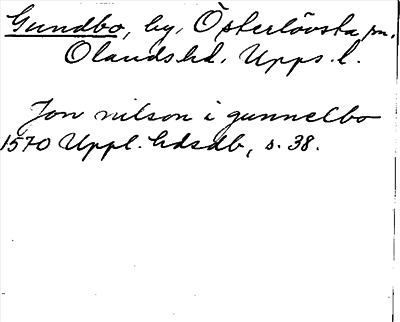 Gundbo, by, Österlövsta sn.
Olands hd. Upps. l.
Jon nilson i gunnelbo
1570 Uppl. hdsdb, s. 38.